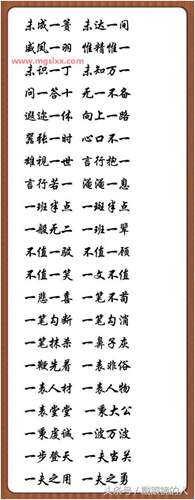 未成一篑 未达一间
威凤一羽 惟精惟一
www.mgslxx.com
未识一丁 未知万一
问一答十 无一不备
遐迩一体 向上一路
嚣张一时 心口不一
雄视一世 言行抱一
言行若一 淹淹一息
一班半点 一斑半点
一般无二 一班一辈
不值一驳 不值一顾
不值一笑 一文不值
一悲一喜 一笔不苟
一笔勾断 一笔勾消
一笔抹杀 一鼻子灰
一鞭先着 一表非俗
一表人材 一表人物
一表堂堂 一秉大公
一秉虔诚 一波万波
一步登天 一夫当关
一夫之用 一夫之勇